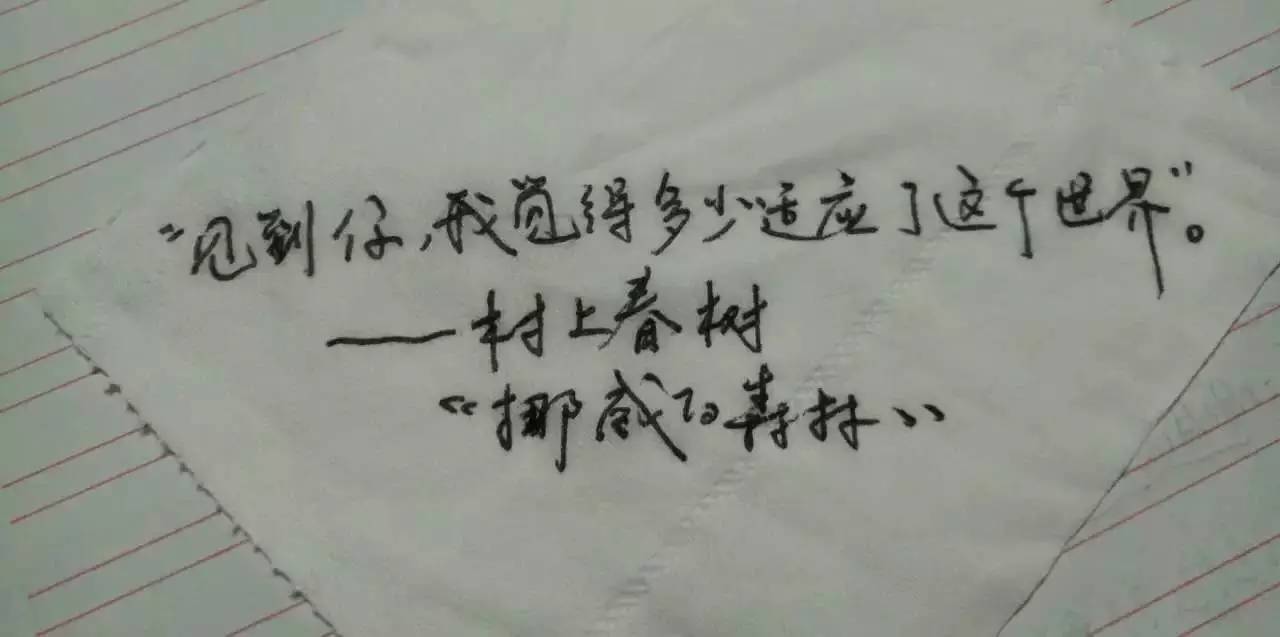 “见到你，我觉得多少适应了这个世界”。
——村上春树
《挪威的森林》